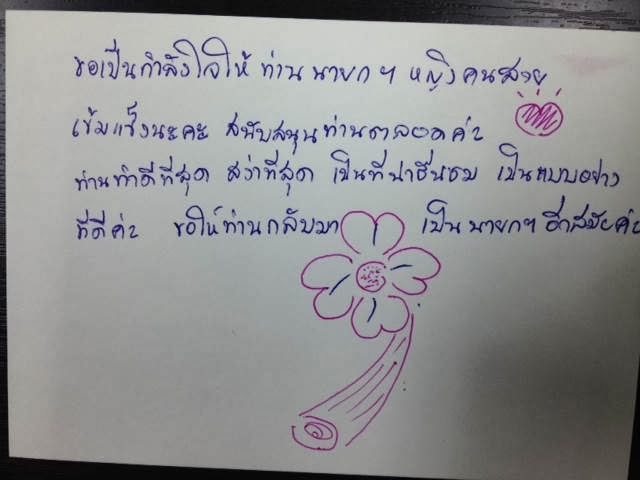 ขอเป็นกำลังใจให้ ท่านนายกฯ หญิงคนสวย
เข้มแข็งนะคะ สนับสนุนท่านตลอดค่ะ
ท่านทำดีที่สุด สง่าที่สุด เป็นที่น่าชื่นชม เป็นแบบอย่าง
ที่ดีค่ะ ขอให้ท่านกลับมา เป็นนายกฯ อีกสมัยค่ะ